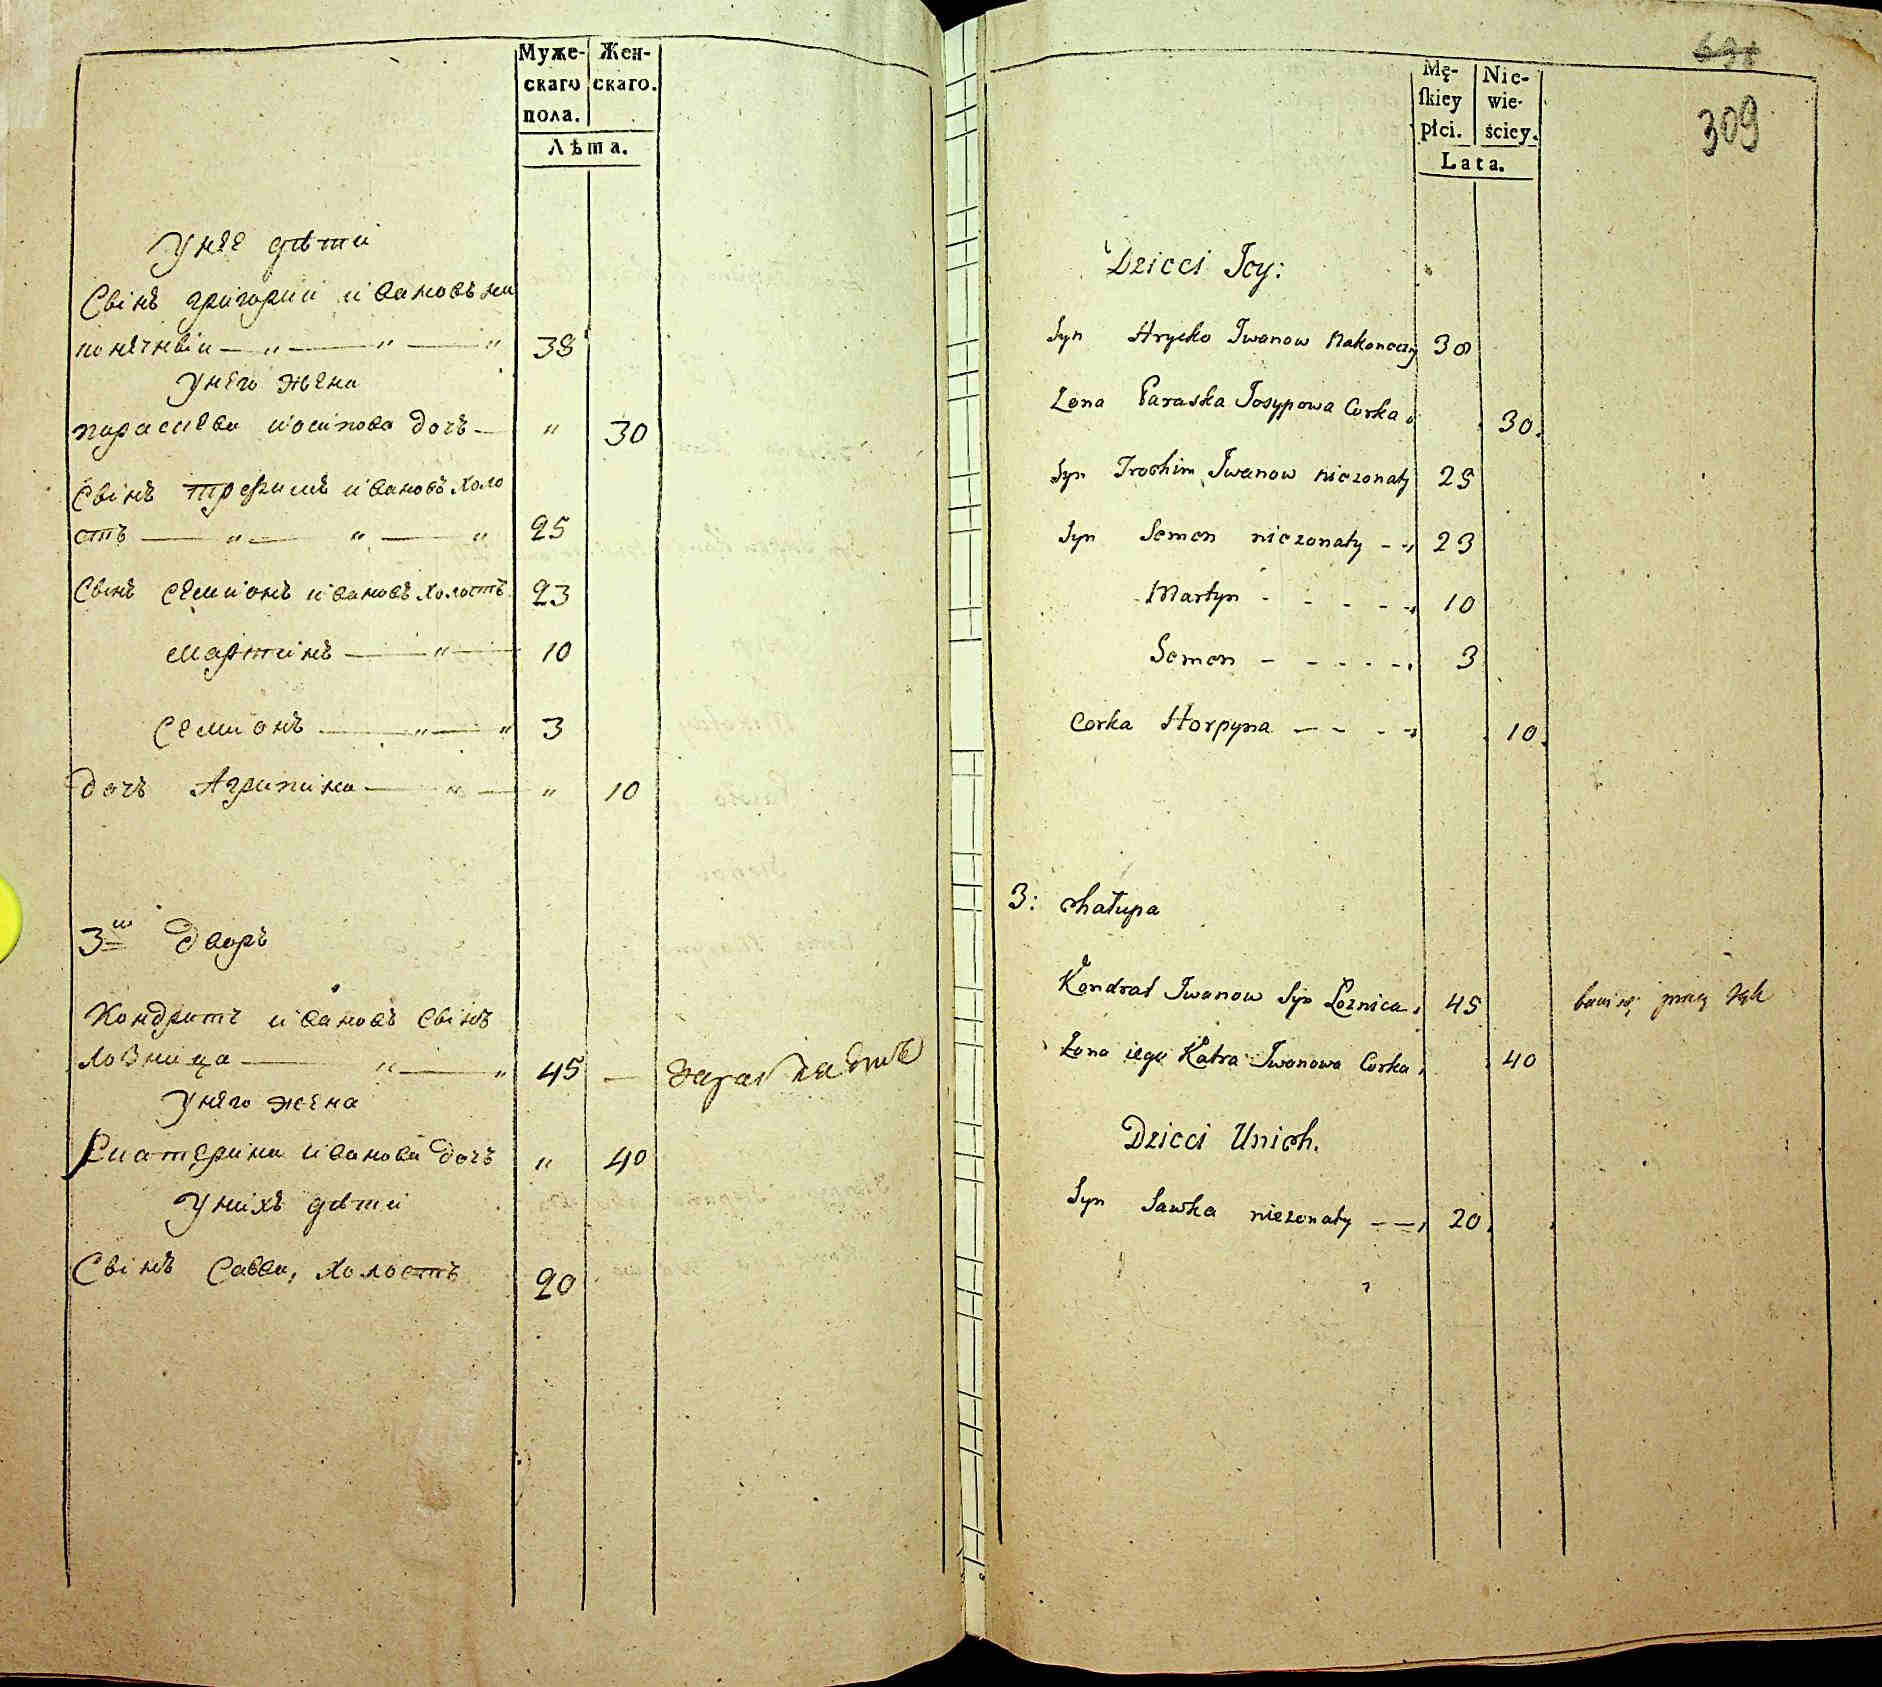 Муже-
скаго
пола.
Жен-
скаго.
Лѣта.
У нее дѣти
Свінъ григорий ивановъ на
38
У него жена
парасиева иосипова дочь — " 30
Свінъ трофимъ ивановъ холо
стъ — " — " — " 25
Свінъ семионъ ивановъ холостъ 23
мартинъ — " — 10
Семионъ — " — " 3
дочъ Агрипина — " — " 10
3й дворъ
Кондратъ ивановъ свінъ
лозница — " — " 45 —
У него жена
Екатерина иванова дочъ " 40
У нихъ дѣти
Свінъ Савва, холостъ 20
631
309
Mę-
ſkiey
płci.
Nie-
wie-
ściey.
Lata.
Dzieci Jey:
Syn Hryćko Iwanow Nakoneczny 38
Zona Paraska Josypowa Corka 30.
Syn Trochim Iwanow niezonaty 25
Syn Semen niezonaty - - 23
Martyn - - - - - 10
Semen - - - - - 3
Corka Horpyna - - - - 10.
3: chałupa
Kondrat Iwanow Syn Łoznica. 45
Żona iego Katra Iwanowa Corka, 40
Dzieci Unich.
Syn Sawka niezonaty - - 20.